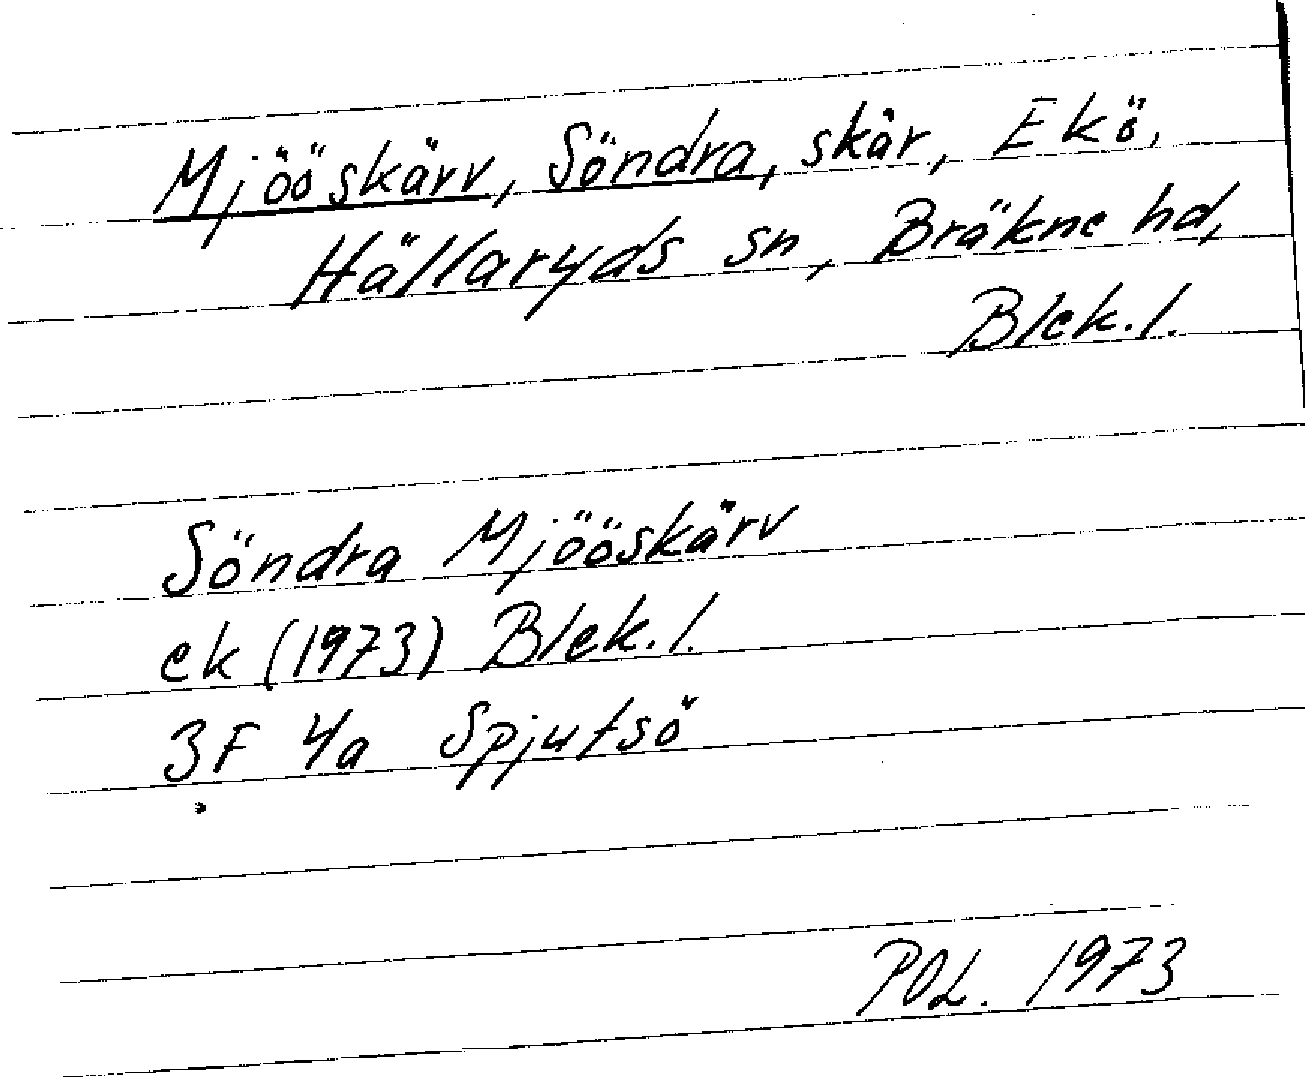 Mjööskärv, Söndra, skär, Ekö,
Hällaryds sn, Bräkne hd,
Blek.l.
Söndra Mjööskärv
ek (1973) Blek.l.
3F 4a Spjutsö
POL. 1973